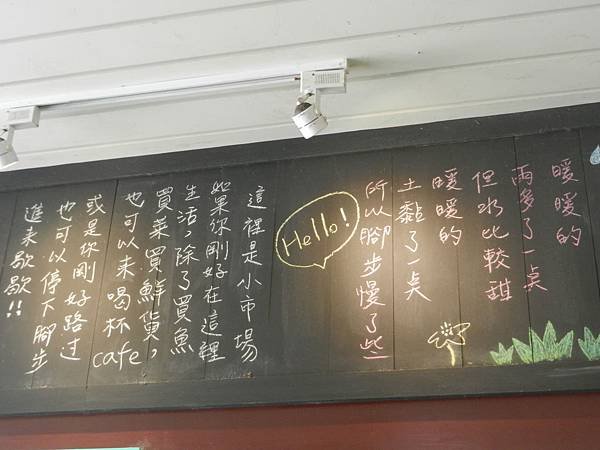 暖暖的
雨多了一点
但水比較甜
暖暖的
土黏了一点
所以腳步慢了些
Hello!
這裡是小市場
如果你剛好在這裡
生活,除了買魚
買菜買鮮貨,
也可以來喝杯cafe
或是你剛好路過
也可以停下腳步
進來歇歇!!